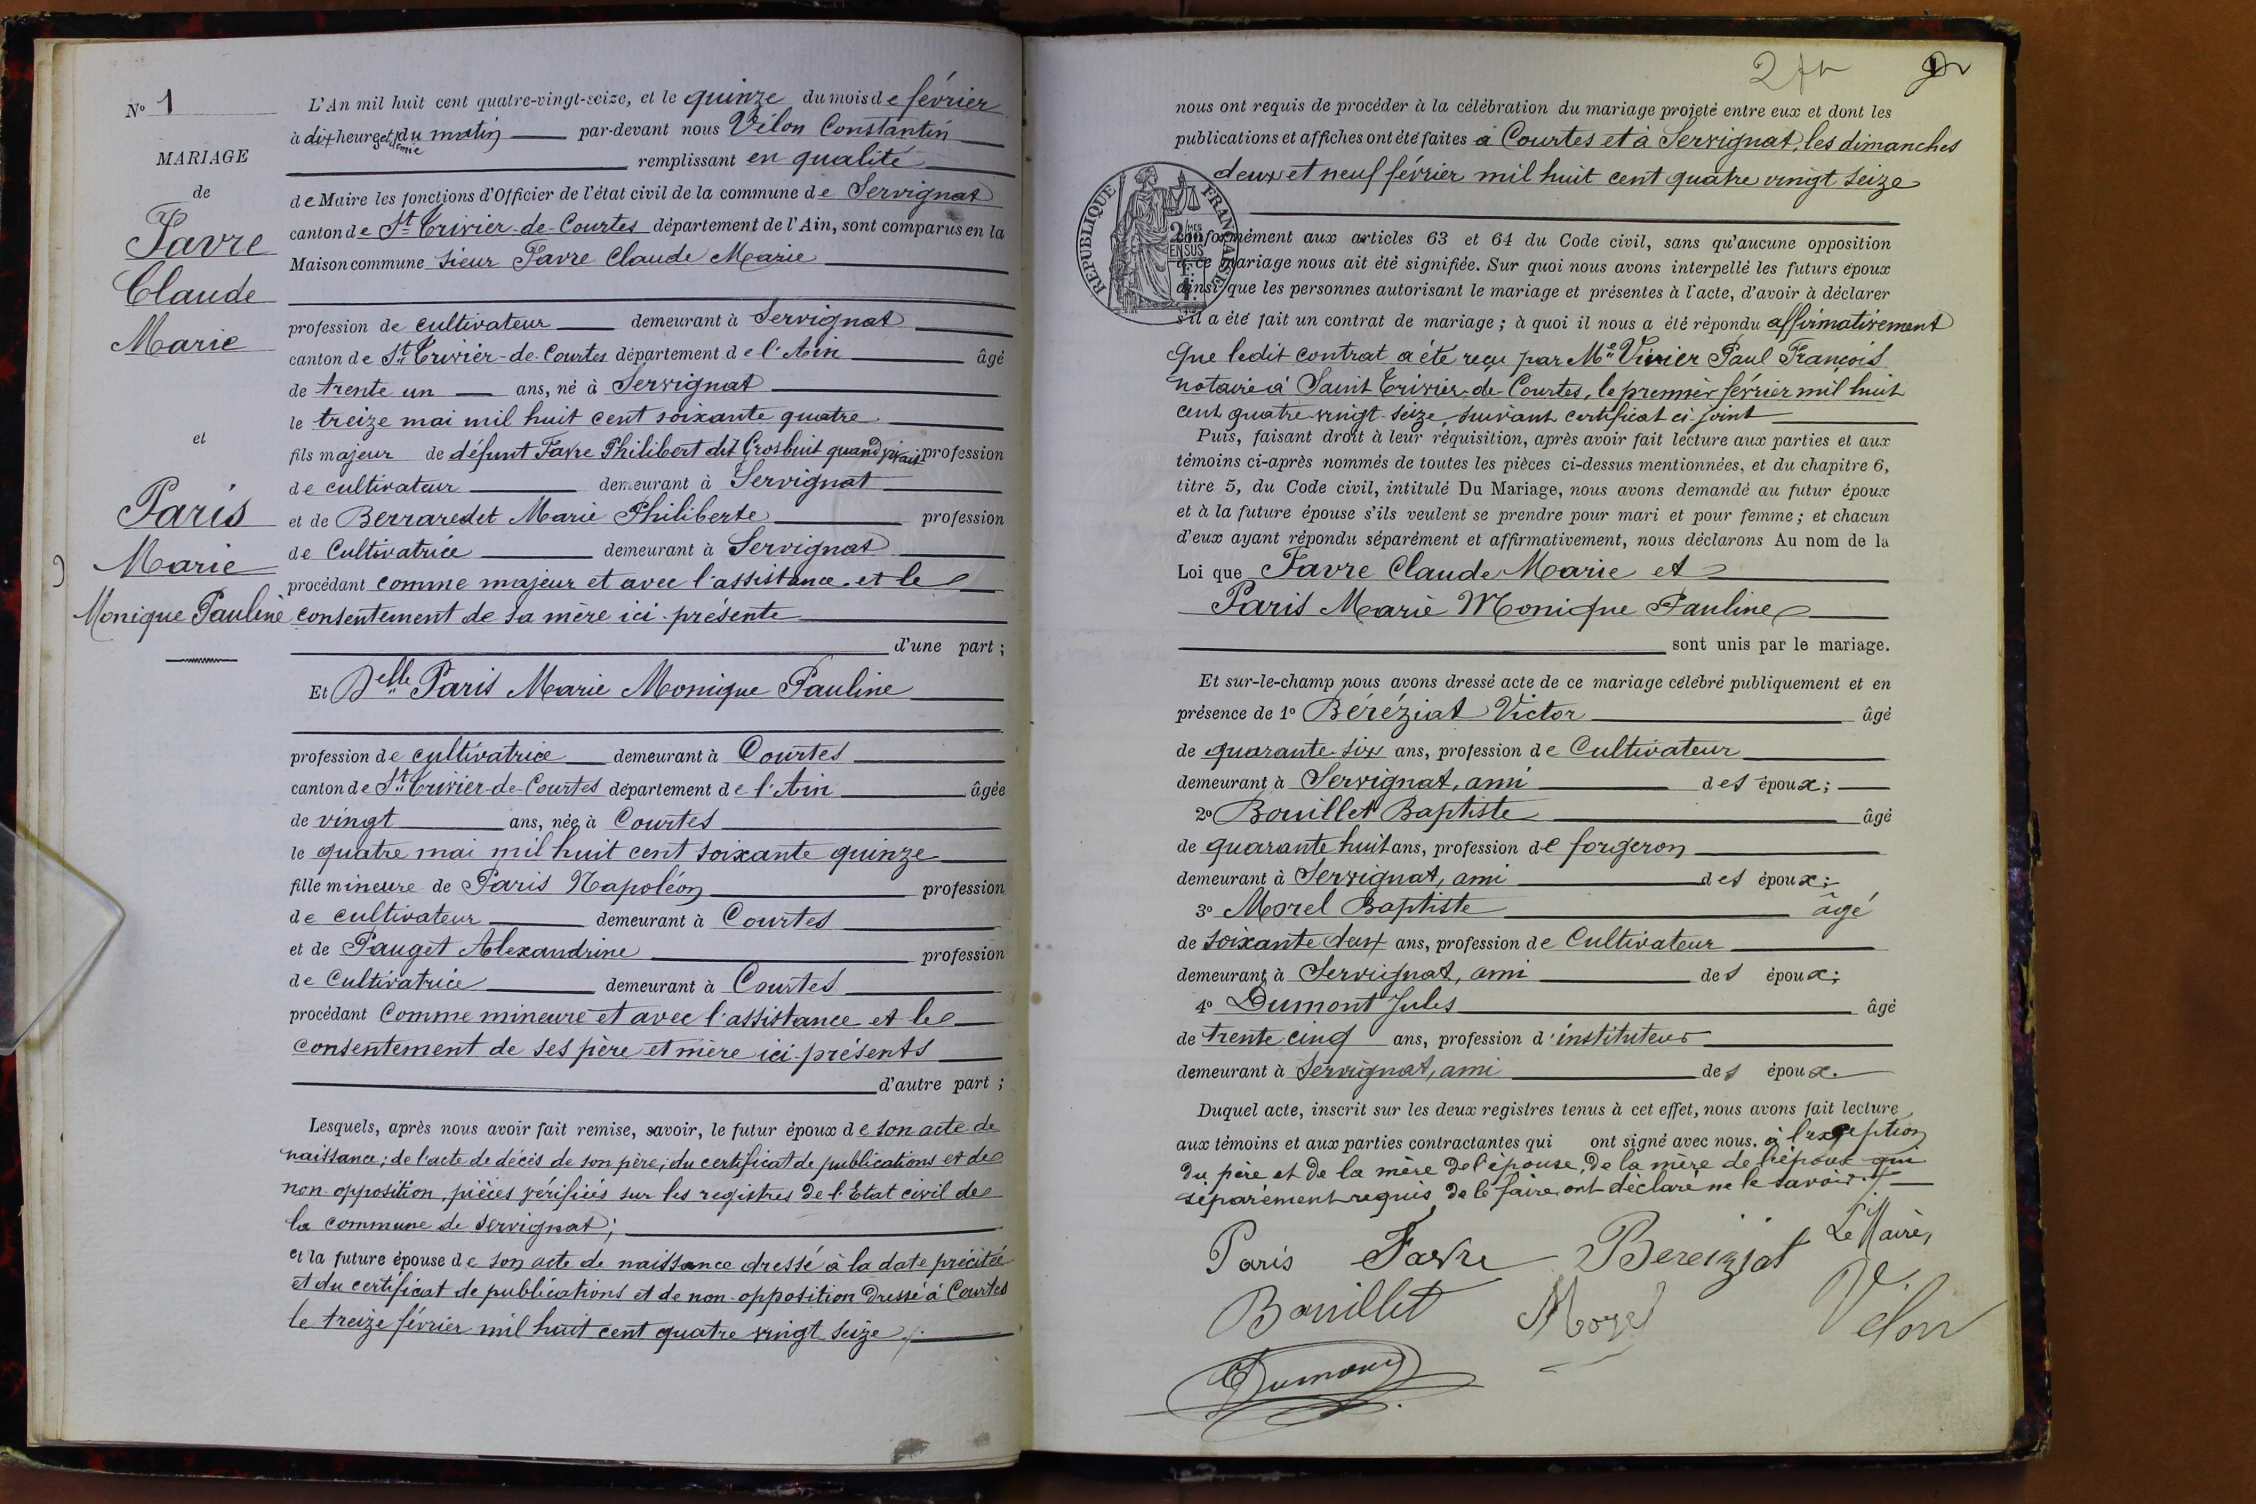 N° 1
MARIAGE
de
Favre
Claude
Marie
et
Paris
Marie
Monique Pauline
L'An mil huit cent quatre-vingt-seize, et le quinze du mois de février
à dix heures et demie du matin par-devant nous Vélon Constantin
remplissant en qualité
de Maire les fonctions d'Officier de l'état civil de la commune de Servignat
canton de St Trivier-de-Courtes département de l'Ain, sont comparus en la
Maison commune sieur Favre Claude Marie
profession de cultivateur demeurant à Servignat
canton de St Trivier-de-Courtes département de l'Ain âgé
de trente un ans, né à Servignat
le treize mai mil huit cent soixante quatre
fils majeur de défunt Favre Philibert dit Grosbuit quand vivait profession
de cultivateur demeurant à Servignat
et de Berraredet Marie Philiberte profession
de Cultivatrice demeurant à Servignat
procédant comme majeur et avec l'assistance et le
consentement de sa mère ici présente
d'une part ;
Et Delle Paris Marie Monique Pauline
profession de cultivatrice demeurant à Courtes
canton de St Trivier-de-Courtes département de l'Ain âgée
de vingt ans, née à Courtes
le quatre mai mil huit cent soixante quinze
fille mineure de Paris Napoléon profession
de cultivateur demeurant à Courtes
et de Pauget Alexandrine profession
de Cultivatrice demeurant à Courtes
procédant Comme mineure et avec l'assistance et le
consentement de ses père et mère ici présents
d'autre part ;
Lesquels, après nous avoir fait remise, savoir, le futur époux de son acte de
naissance; de l'acte de décès de son père; du certificat de publications et de
non opposition, pièces vérifiées sur les registres de l'Etat civil de
la commune de Servignat;
et la future épouse de son acte de naissance dressé à la date précitée
et du certificat de publications et de non-opposition dressé à Courtes
le treize février mil huit cent quatre vingt seize
2
nous ont requis de procéder à la célébration du mariage projeté entre eux et dont les
publications et affiches ont été faites à Courtes et à Servignat, les dimanches
deux et neuf février mil huit cent quatre vingt seize
REPUBLIQUE FRANÇAISE
conformément aux articles 63 et 64 du Code civil, sans qu'aucune opposition
à ce mariage nous ait été signifiée. Sur quoi nous avons interpellé les futurs époux
ainsi que les personnes autorisant le mariage et présentes à l'acte, d'avoir à déclarer
s'il a été fait un contrat de mariage ; à quoi il nous a été répondu affirmativement
Que ledit contrat a été reçu par Me Vivier Paul François
notaire à Saint Trivier-de-Courtes, le premier février mil huit
cent quatre-vingt-seize, suivant certificat ci joint
Puis, faisant droit à leur réquisition, après avoir fait lecture aux parties et aux
témoins ci-après nommés de toutes les pièces ci-dessus mentionnées, et du chapitre 6,
titre 5, du Code civil, intitulé Du Mariage, nous avons demandé au futur époux
et à la future épouse s'ils veulent se prendre pour mari et pour femme ; et chacun
d'eux ayant répondu séparément et affirmativement, nous déclarons Au nom de la
Loi que Favre Claude Marie et
Paris Marie Monique Pauline
sont unis par le mariage.
Et sur-le-champ nous avons dressé acte de ce mariage célébré publiquement et en
présence de 1° Béréziat Victor âgé
de quarante-six ans, profession de Cultivateur
demeurant à Servignat, ami des époux ;
2° Bouillet Baptiste âgé
de quarante huit ans, profession de forgeron
demeurant à Servignat, ami des époux ;
3° Morel Baptiste âgé
de soixante deux ans, profession de Cultivateur
demeurant à Servignat, ami des époux ;
4° Dumont Jules âgé
de trente cinq ans, profession d'instituteur
demeurant à Servignat, ami des époux.
Duquel acte, inscrit sur les deux registres tenus à cet effet, nous avons fait lecture
aux témoins et aux parties contractantes qui ont signé avec nous. à l'exception
du père et de la mère de l'épouse, de la mère de l'époux qui
séparément requis de le faire ont déclaré ne le savoir.
Paris Favre Bereiziat Le Maire,
Bouillet Morel Vélon
Dumont